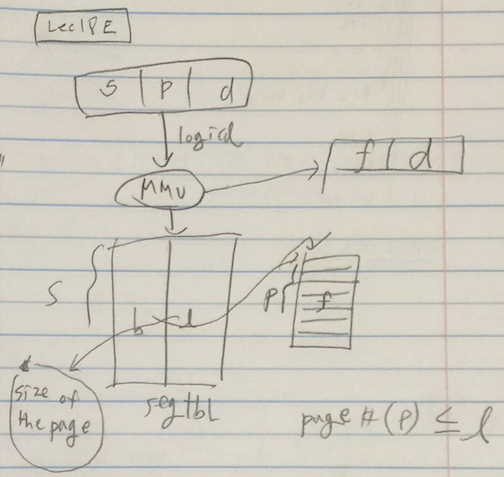 Lec1PE
s p d
logical
MMU
f d
s
p
f
b l
size of
the page
segtbl
page # (p) ≤ l